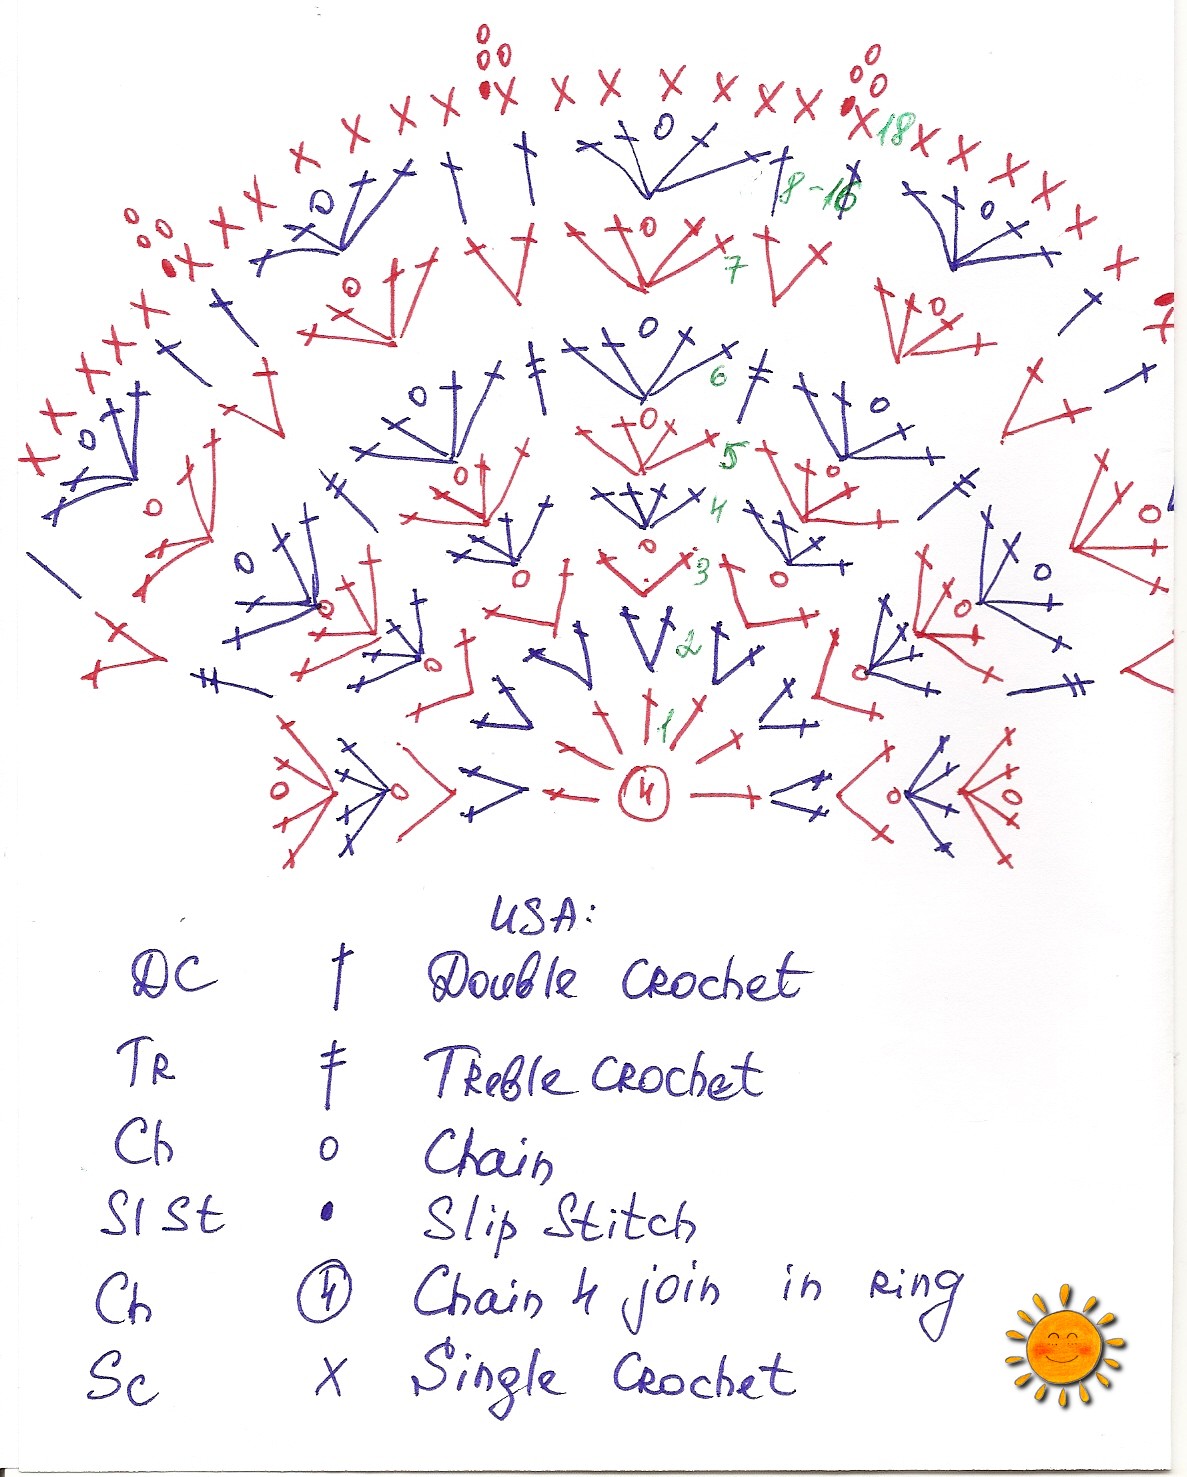 18
8-16
7
6
5
4
3
2
1
4
USA:
DC † Double Crochet
TR ǂ Treble Crochet
Ch o Chain
Sl St • Slip Stitch
Ch ④ Chain 4 join in Ring
Sc X Single Crochet